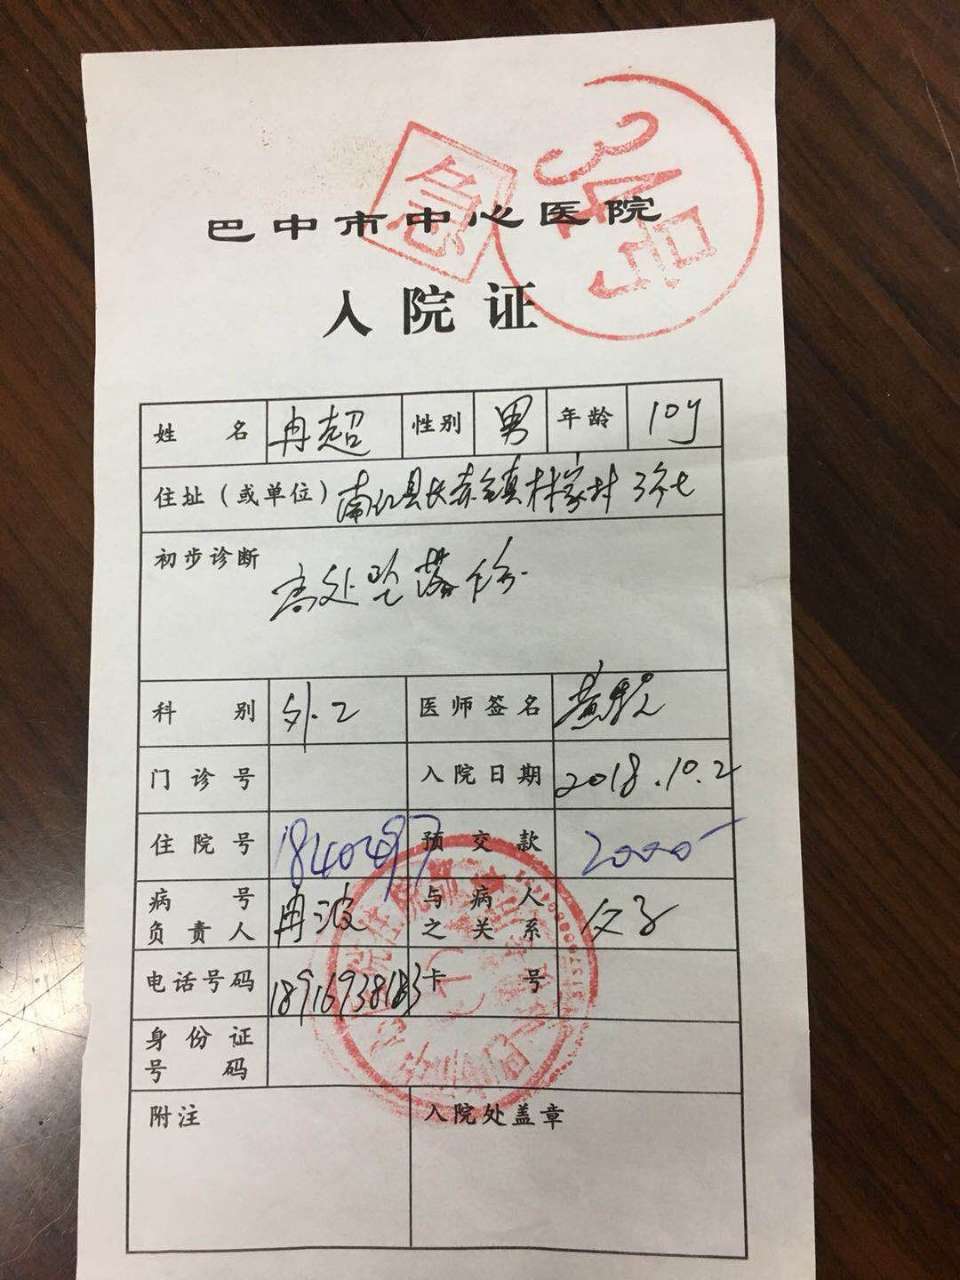 急
巴中市中心医院
入院证
姓名 冉超 性别 男 年龄 10y
住址（或单位） 南江县长赤镇林家村
初步诊断 高处坠落伤
科别 外2 医师签名 黄
门诊号 入院日期 2018.10.2
住院号 预交款 2000
病号负责人 冉波 与病人之关系 父子
电话号码 卡号
身份证号码
附注 入院处盖章